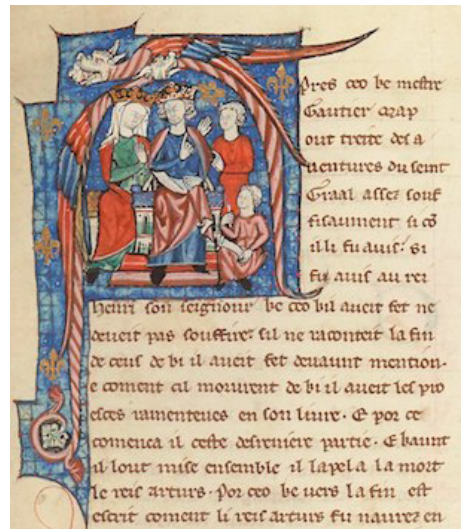 Apres ceo ke mestre
Gautier Map
out treite des a
uentures du seint
Graal assez souf
fisaument si cō
il li fu auis. Si
fu auis au rei
henri son seignour ke ceo kil aueit fet ne
deueit pas souffire. sil ne raconteit la fin
de ceus de ki il aueit fet deuaunt mention.
e coment cil morurent de ki il aueit les pro
esces ramenteues en son liure. E por ce
comenca il ceste desreniere partie. E kaunt
il lout mise ensemble il lapela la mort
le reis arturs. Por ceo ke uers la fin est
escrit coment li reis arturs fu naurez en